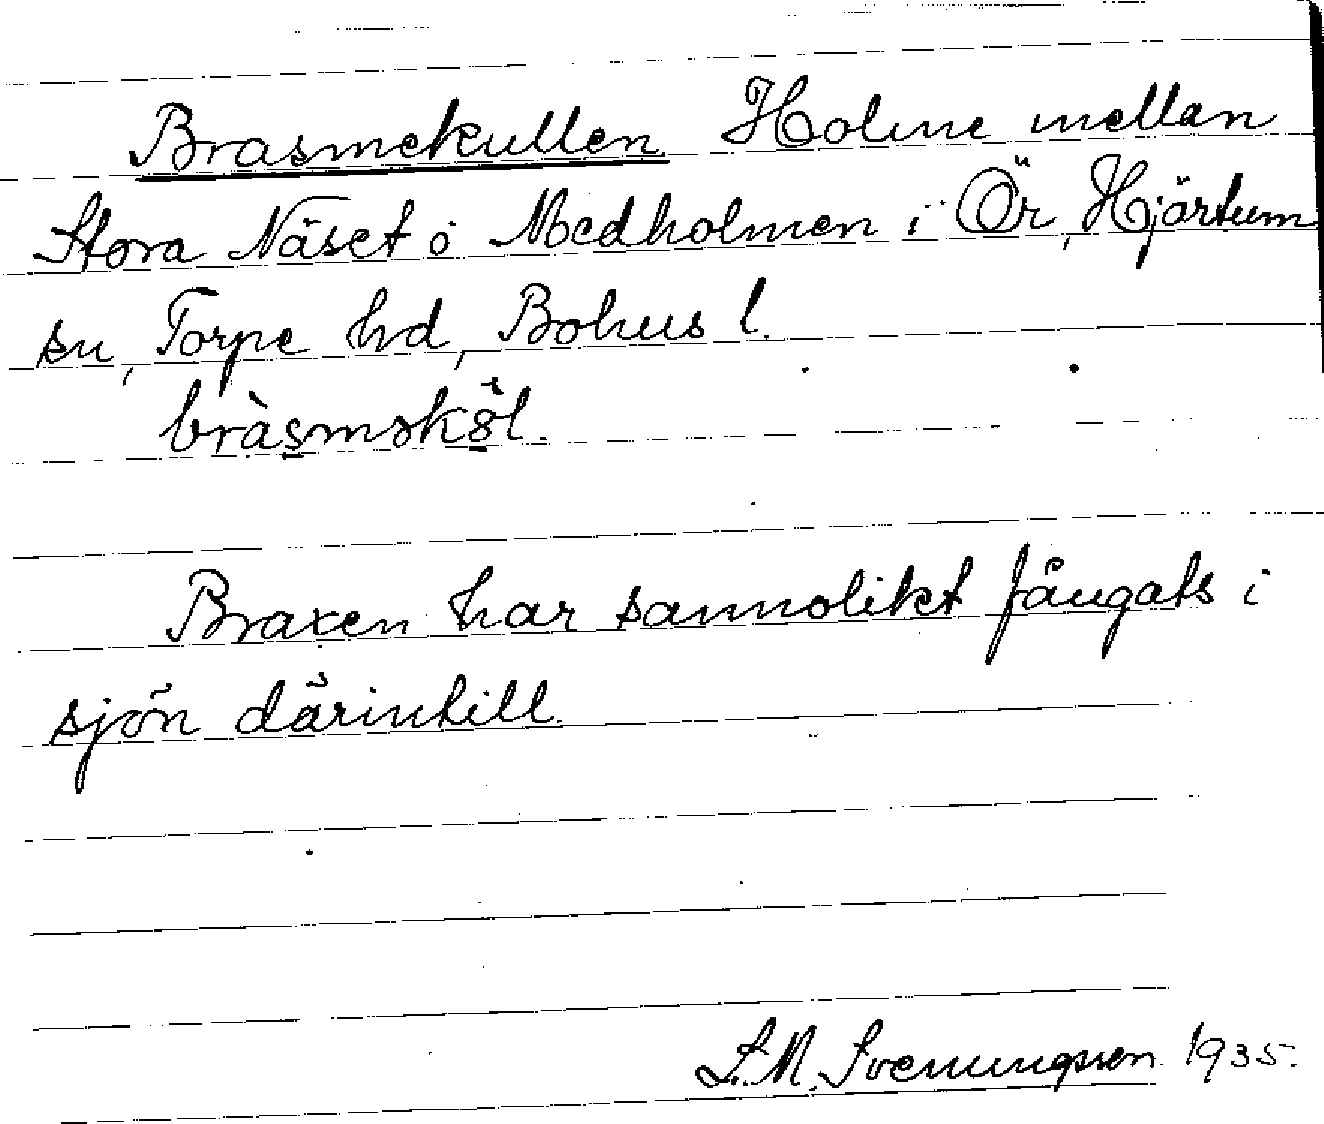 Brasmekullen Holme mellan
Stora Näset o Medholmen i Ör, Hjärtum
sn, Torpe hd, Bohus l.
Braxen har sannolikt fångats i
sjön därintill.
S. M. Svenungsson 1935.